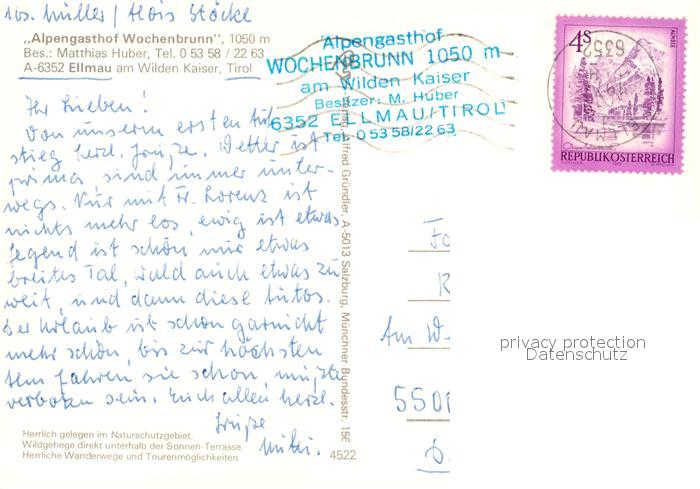 Abs. Müller / Alois Stöcke
„Alpengasthof Wochenbrunn", 1050 m
Bes.: Matthias Huber, Tel. 0 53 58 / 22 63
A-6352 Ellmau am Wilden Kaiser, Tirol
Alpengasthof
WOCHENBRUNN 1050 m
am Wilden Kaiser
Besitzer: M. Huber
6352 ELLMAU/TIROL
Tel. 0 53 58/22 63
4S
ALMSEE
6352
REPUBLIK ÖSTERREICH
Ihr Lieben!
Von unserem ersten Auf-
stieg herzl. Grüße. Wetter ist
prima sind immer unter-
wegs. Nur mit Fr. Lorenz ist
nichts mehr los, ewig ist etwas
Gegend ist schön nur etwas
breites Tal, Wald auch etwas zu
weit, und dann diese Autos.
Der Urlaub ist schon garnicht
mehr schön, bis zur höchsten
Alm fahren sie schon, müßte
verboten sein. Euch allen herzl.
Grüße
Miki.
Alfred Gründler, A-5013 Salzburg, Münchner Bundesstr. 156
Am W
privacy protection
Datenschutz
Herrlich gelegen im Naturschutzgebiet.
Wildgehege direkt unterhalb der Sonnen-Terrasse.
Herrliche Wanderwege und Tourenmöglichkeiten
4522